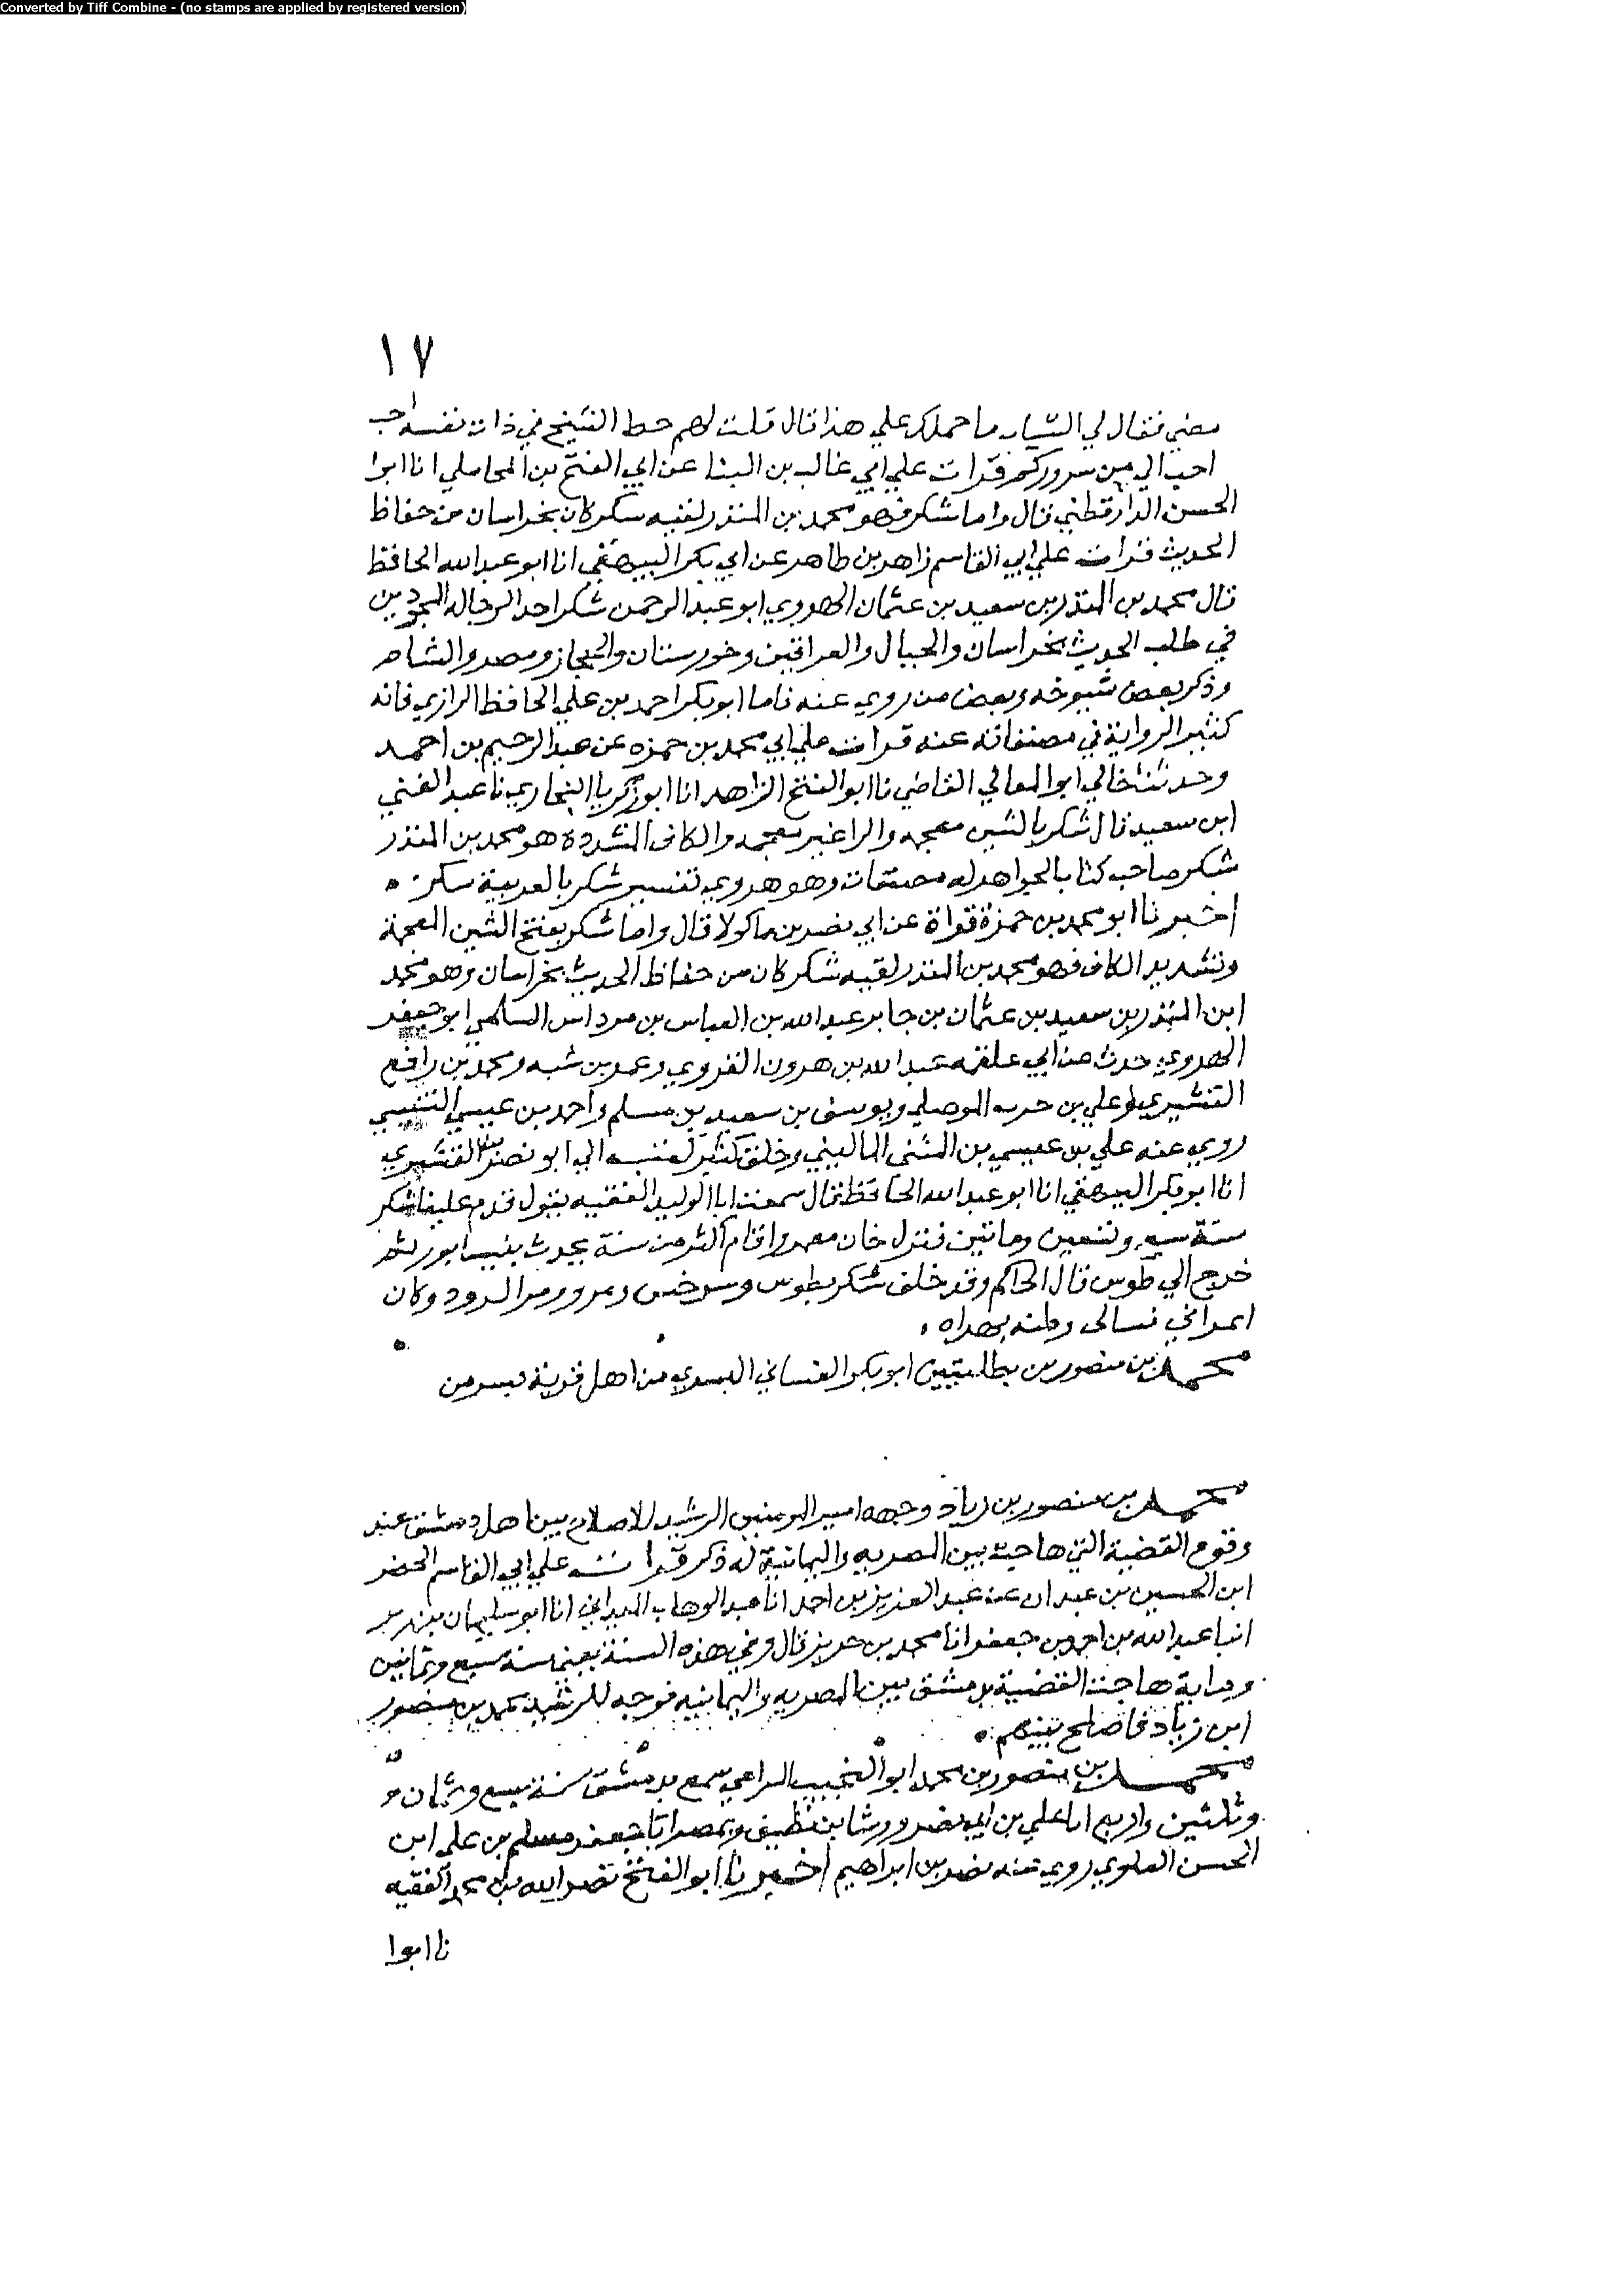 Converted by Tiff Combine - (no stamps are applied by registered version)
١٧
مضي فقال لي الشباب ما حملك علي هذا قال قلت لهم حط الشيخ في ذات نفسه احب
احب الي من سروركم قرات علي ابي غالب بن البنا عن ابي الفتح بن المحاملي انا ابوا
الحسن الدارقطني قال واما شكر فهو محمد بن المنذر لقبه شكر كان بخراسان من حفاظ
الحديث قرات علي ابي القاسم زاهر بن طاهر عن ابي بكر البيهقي انا ابو عبد الله الحافظ
قال محمد بن المنذر بن سعيد بن عثمان الهروي ابو عبد الرحمن شكر احد الرحاله المجودين
في طلب الحديث بخراسان والجبال والعراقين وخورستان والحجاز ومصر والشام
وذكر بعض شيوخه وبعض من روي عنه فاما ابو بكر احمد بن علي الحافظ الرازي فانه
كثير الرواية في مصنفاته عنه قرات علي ابي محمد بن حمزه عن عبد الرحيم بن احمد
وحدثنا خالي ابو المعالي القاضي نا ابو الفتح الزاهد انا ابو زكريا البخاري نا عبد الغني
ابن سعيد قال شكر بالشين معجمه والرا غير معجمه والكاف المشددة هو محمد بن المنذر
شكر صاحب كتاب الجواهر له مصنفات وهو هروي تفسير شكر بالعربية سكر
اخبرنا ابو محمد بن حمزة قراة عن ابي نصر بن ماكولا قال واما شكر بفتح الشين المعجمة
وتشديد الكاف فهو محمد بن المنذر لقبه شكر كان من حفاظ الحديث بخراسان وهو محمد
ابن المنذر بن سعيد بن عثمان بن جابر عبد الله بن العباس بن مرداس السلمي ابو جعفر
الهروي حدث عن ابي علقمه عبد الله بن هرون الفروي وعمر بن شبه ومحمد بن رافع
القشيري وعلي بن حرب الموصلي ويوسف بن سعيد بن مسلم واحمد بن عيسي التنيسي
روي عنه علي بن عيسي بن المثنى الماليني وخلق كثير كتب الي ابو نصر بن القشيري
انا ابو بكر البيهقي انا ابو عبد الله الحافظ قال سمعت ابا الوليد الفقيه يقول قدم علينا شكر
سنة سبع وتسعين وماتين فنزل خان معمر واقام اكثر من سنة يحدث بنيسابور ثم
خرج الي طوس قال الحاكم وقد خلف شكر بطوس وسرخس ومرو ومرو الرود وكان
وطنه بهراه
محمد بن منصور بن بطليتين ابو بكر الغساني البسري من اهل قرية بسر من
محمد بن منصور بن زياد وجهه امير المومنين الرشيد للاصلاح بين اهل دمشق عند
وقوع القضية التي هاجت بين المضريه واليمانية له ذكر قرات علي ابي القاسم الخضر
ابن الحسين بن عبدان عن عبد العزيز بن احمد انا عبد الوهاب الميداني انا ابو سليمان بن زبر
انبا عبد الله بن احمد بن جعفر انا محمد بن جرير قال وفي هذه السنة يعني سنة سبع وثمانين
وماية هاجت القضية بدمشق بين المضريه واليمانيه فوجه الرشيد محمد بن منصور
ابن زياد فاصلح بينهم
محمد بن منصور بن محمد ابو النجيب المراغي سمع بدمشق سنة سبع وثمان و
وثلثين واربع ابا علي بن ابي نصر ورشا بن نظيف وبمصر ابا جعفر مسلم بن علي ابن
الحسن العلوي روي عنه نصر بن ابراهيم اخبرنا ابو الفتح نصر الله بن محمد الفقيه
نا ابوا